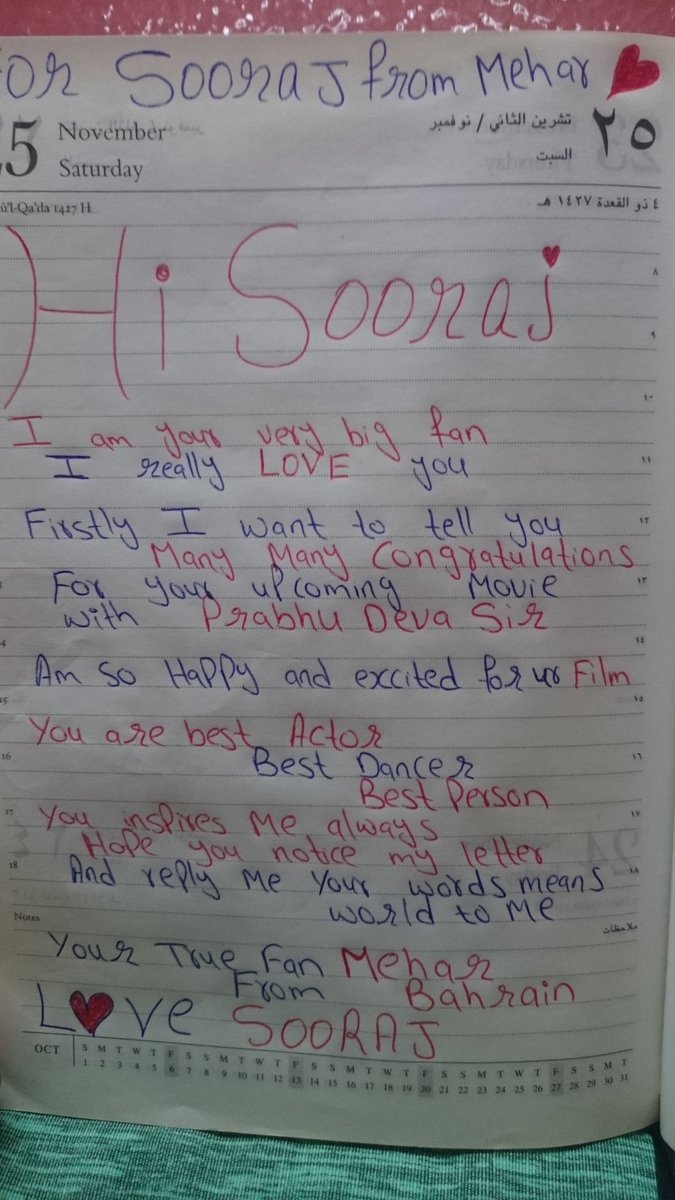 For Sooraj from Mehar
5 November تشرين الثاني / نوفمبر ٢٥
Saturday السبت
٤ ذو القعدة ١٤٢٧ هـ
1427 H
Hi Sooraj
٨
٩
١٠
I am your very big fan
I really LOVE you
١١
Firstly I want to tell you
١٢
Many Many Congratulations
For your upcoming Movie
١٣
with Prabhu Deva Sir
4 ١٤
Am so Happy and excited for ur Film
15 ١٥
You are best Actor
Best Dancer
16 ١٦
Best Person
You inspires Me always
17 ١٧
Hope you notice my letter
And reply Me Your words means
18 ١٨
world to Me
Notes ملاحظات
Your True Fan Mehar
From Bahrain
Love SOORAJ
OCT S M T W T F S S M T W T F S S M T W T F S S M T W T F S S M T
1 2 3 4 5 6 7 8 9 10 11 12 13 14 15 16 17 18 19 20 21 22 23 24 25 26 27 28 29 30 31